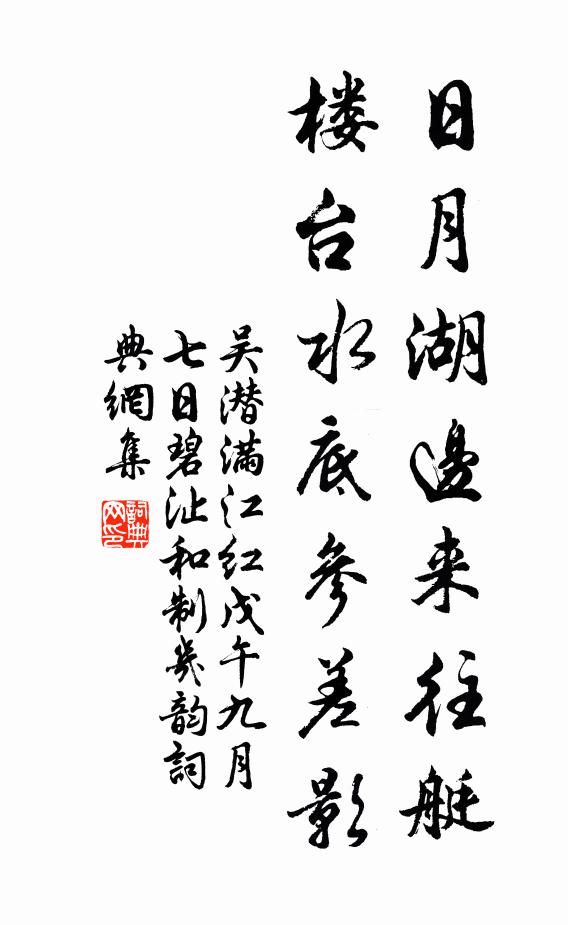 日月湖邊来往艇
楼台水底参差影
吴潜满江红戊午九月
七日碧沚和制幾韵詞
典網集
詞典網印